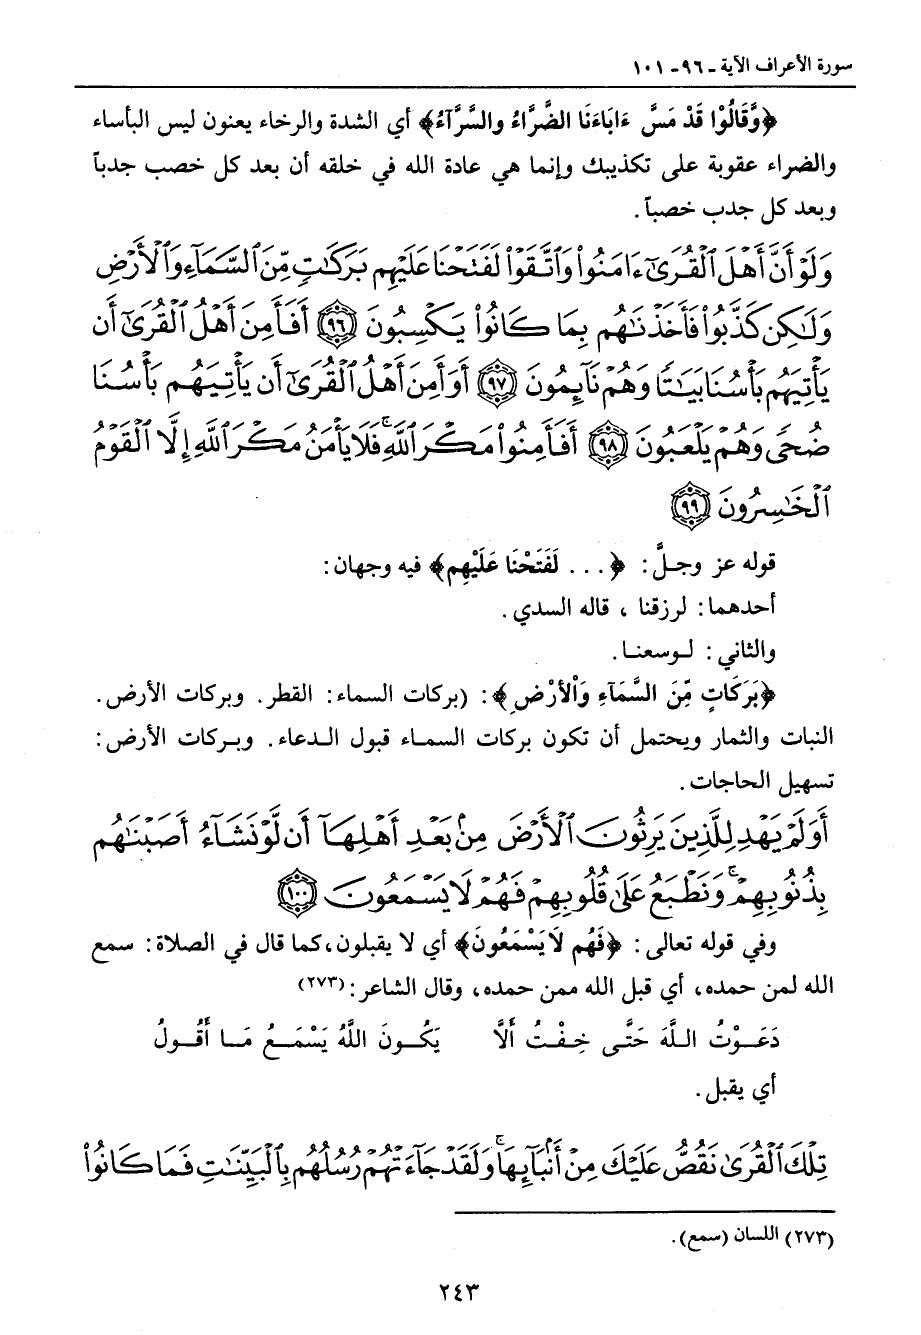 سورة الأعراف الآية ـ ٩٦ـ ١٠١
﴿وَّقَالُوْا قَدْ مَسَّ ءَابَاءَنَا الضَّرَّاءُ والسَّرَّآءُ﴾ أي الشدة والرخاء يعنون ليس البأساء
والضراء عقوبة على تكذيبك وإنما هي عادة الله في خلقه أن بعد كل خصب جدباً
وبعد كل جدب خصباً.
وَلَوْ أَنَّ أَهْلَ ٱلْقُرَىٰٓ ءَامَنُوا۟ وَٱتَّقَوْا۟ لَفَتَحْنَا عَلَيْهِم بَرَكَٰتٍ مِّنَ ٱلسَّمَآءِ وَٱلْأَرْضِ
وَلَٰكِن كَذَّبُوا۟ فَأَخَذْنَٰهُم بِمَا كَانُوا۟ يَكْسِبُونَ ۝٩٦ أَفَأَمِنَ أَهْلُ ٱلْقُرَىٰٓ أَن
يَأْتِيَهُم بَأْسُنَا بَيَٰتًا وَهُمْ نَآئِمُونَ ۝٩٧ أَوَأَمِنَ أَهْلُ ٱلْقُرَىٰٓ أَن يَأْتِيَهُم بَأْسُنَا
ضُحًى وَهُمْ يَلْعَبُونَ ۝٩٨ أَفَأَمِنُوا۟ مَكْرَ ٱللَّهِ ۚ فَلَا يَأْمَنُ مَكْرَ ٱللَّهِ إِلَّا ٱلْقَوْمُ
ٱلْخَٰسِرُونَ ۝٩٩
قوله عز وجلَّ: ﴿... لَفَتَحْنَا عَلَيْهِم﴾ فيه وجهان:
أحدهما: لرزقنا ، قاله السدي.
والثاني: لـوسعنـا.
﴿بَرَكَاتٍ مِّنَ السَّمَآءِ وَالْأَرْضِ﴾: (بركات السماء: القطر. وبركات الأرض.
النبات والثمار ويحتمل أن تكون بركات السمـاء قبول الـدعاء. وبـركات الأرض:
تسهيل الحاجات.
أَوَلَمْ يَهْدِ لِلَّذِينَ يَرِثُونَ ٱلْأَرْضَ مِنۢ بَعْدِ أَهْلِهَآ أَن لَّوْ نَشَآءُ أَصَبْنَٰهُم
بِذُنُوبِهِمْ ۚ وَنَطْبَعُ عَلَىٰ قُلُوبِهِمْ فَهُمْ لَا يَسْمَعُونَ ۝١٠٠
وفي قوله تعالى: ﴿فَهُم لَا يَسْمَعُونَ﴾ أي لا يقبلون،كما قال في الصلاة: سمع
الله لمن حمده، أي قبل الله ممن حمده، وقال الشاعر:(٢٧٣)
دَعَـوْتُ الـلَّهَ حَتَّـى خِـفْـتُ أَلَّا يَكُـونَ اللَّهُ يَسْمَـعُ مَـا أَقُـولُ
أي يقبل.
تِلْكَ ٱلْقُرَىٰ نَقُصُّ عَلَيْكَ مِنْ أَنۢبَآئِهَا ۚ وَلَقَدْ جَآءَتْهُمْ رُسُلُهُم بِٱلْبَيِّنَٰتِ فَمَا كَانُوا۟
(٢٧٣) اللسان (سمع).
٢٤٣